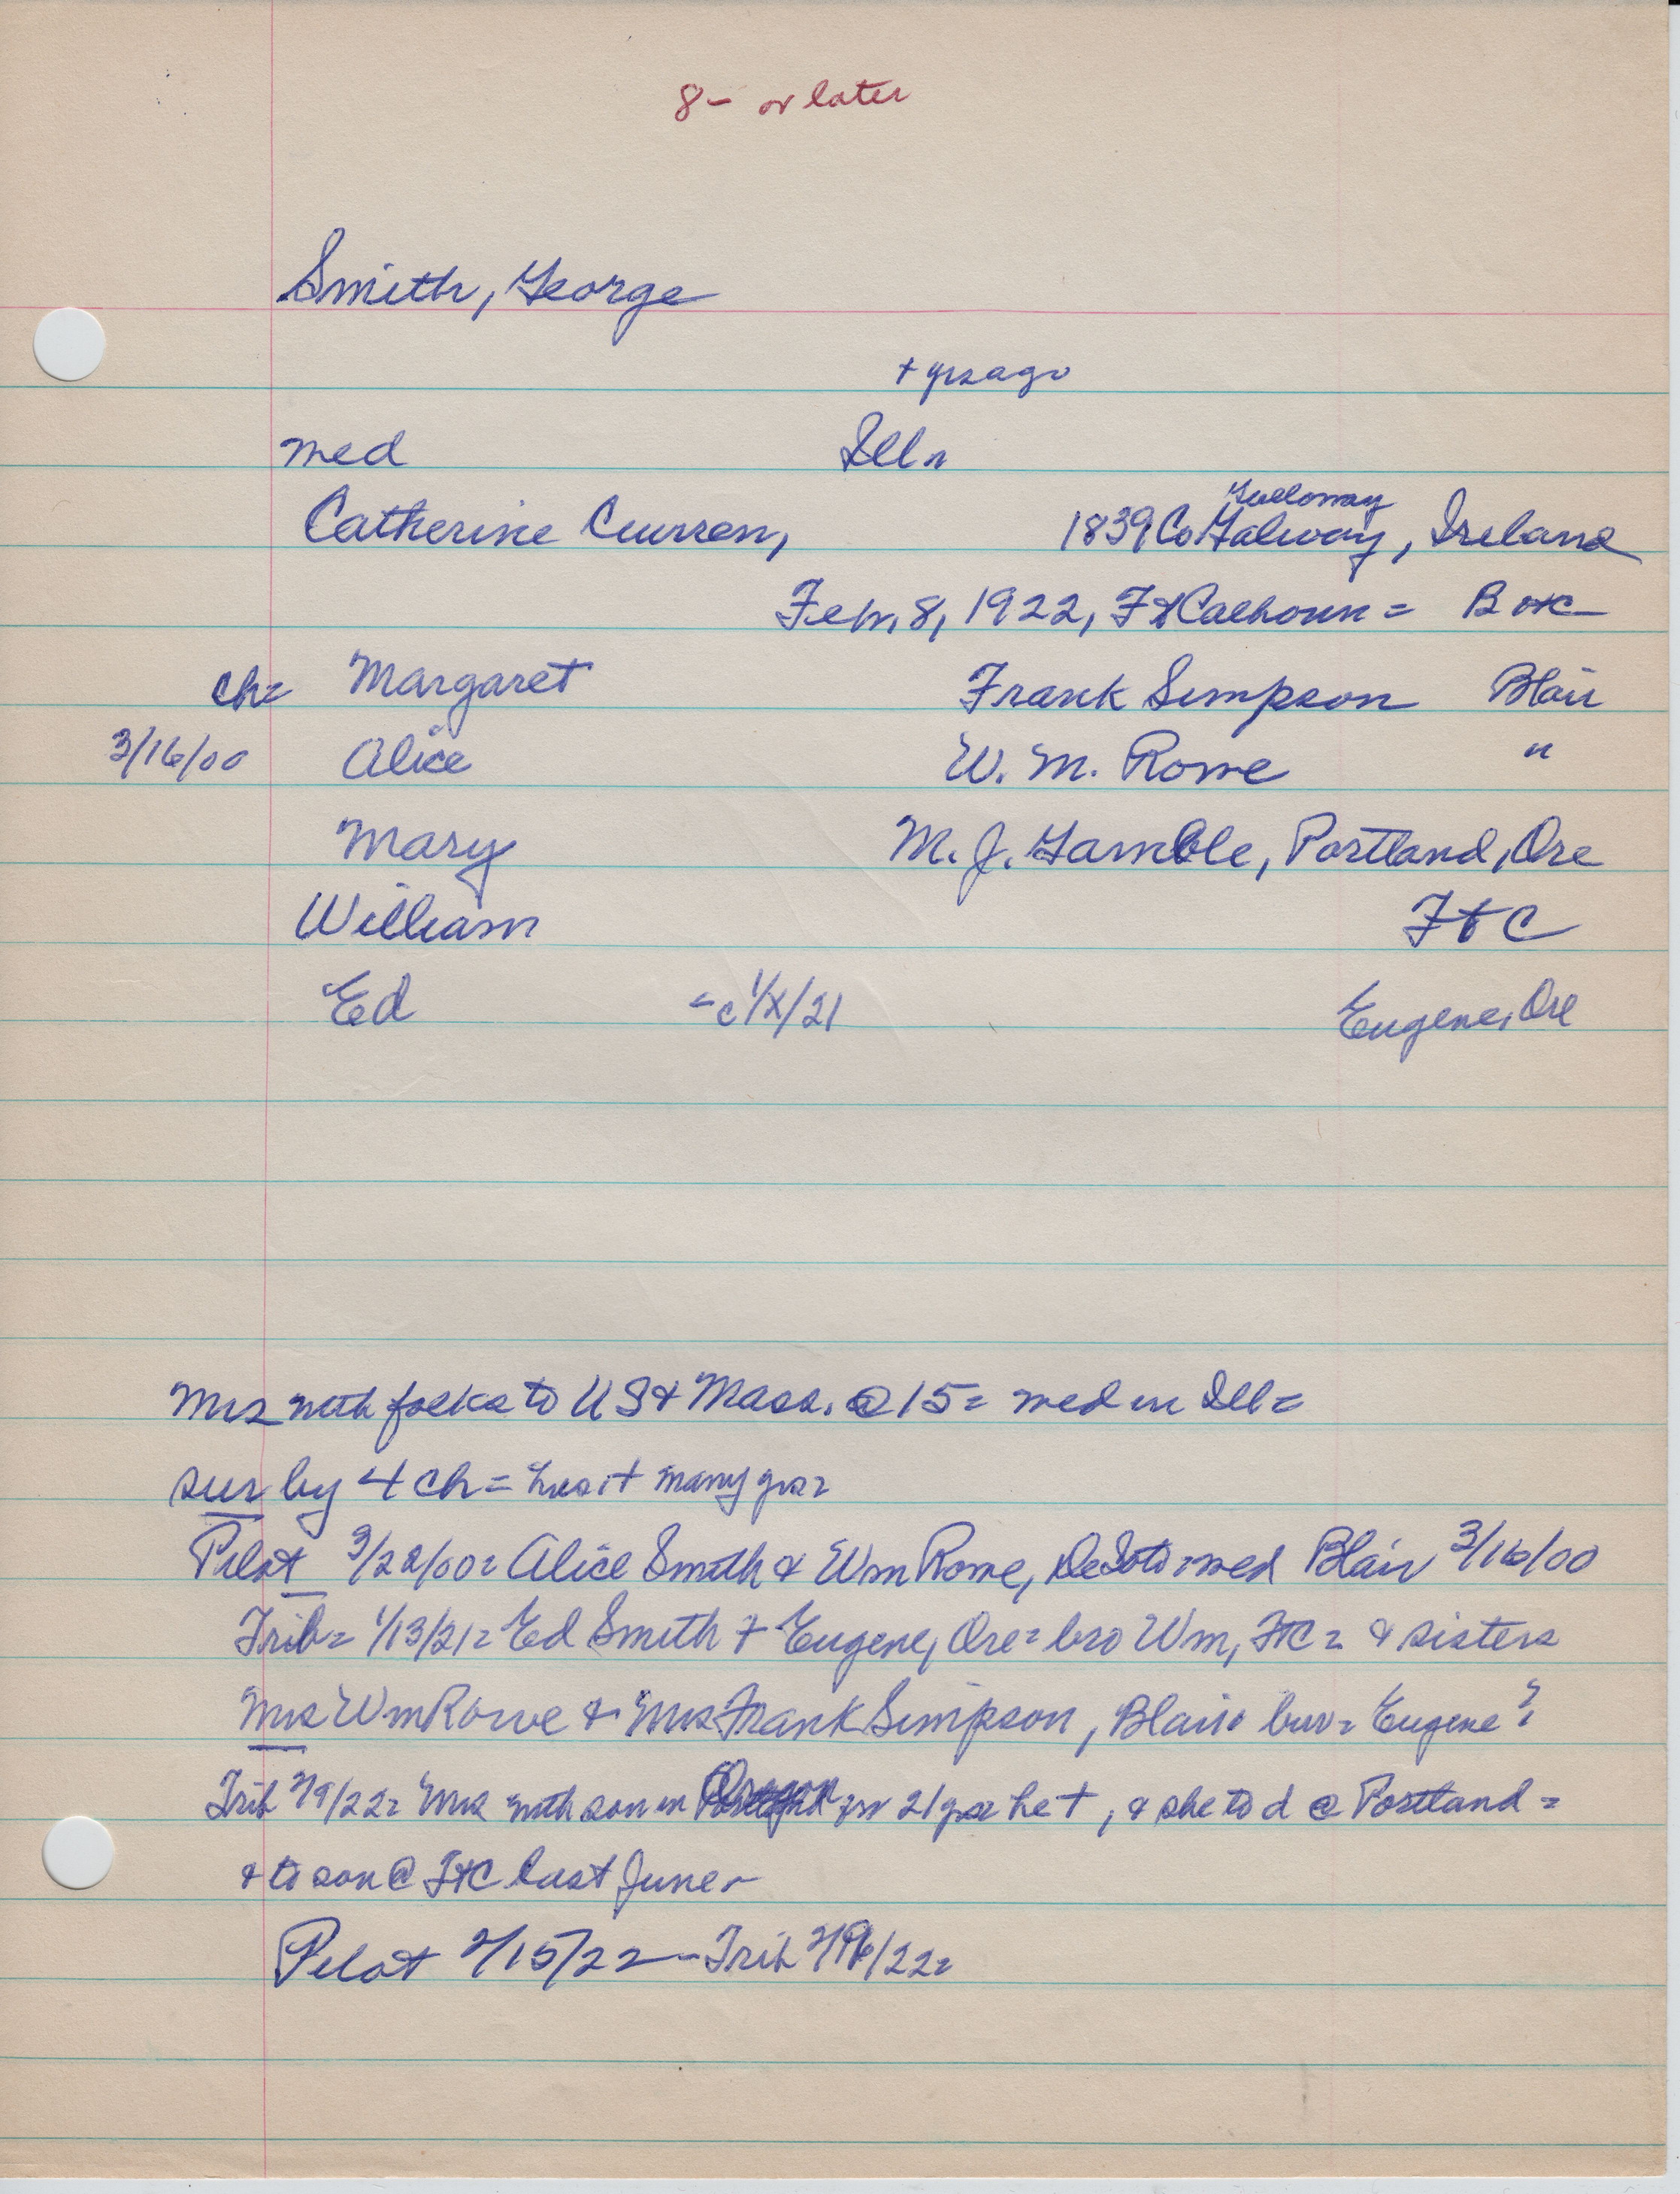 8- or later
Smith, George
+ yrs ago
med Ill
Galloway
Catherine Curren, 1839 Co Galway, Ireland
Feb. 8, 1922, Ft Calhoun =
ch= Margaret Frank Simpson Blair
3/16/00 Alice W. M. Rowe "
Mary M. J. Gamble, Portland, Ore
William Ft C
Ed -c 1/X/21 Eugene, Ore
Mrs with folks to US & Mass. @ 15= med in Ill=
sur by 4 ch= hus + many yrs
Pilot 3/22/00= Alice Smith & Wm Rowe, DeSoto= med Blair 3/16/00
Trib= 1/13/21= Ed Smith + Eugene, Ore= bro Wm, FtC= & sisters
Mrs Wm Rowe & Mrs Frank Simpson, Blair= bur= Eugene?
Trib 2/9/22= Mrs with son in Oregon for 21 yrs he +, & she to d @ Portland=
& to son @ FtC last June-
Pilot 2/15/22 - Trib